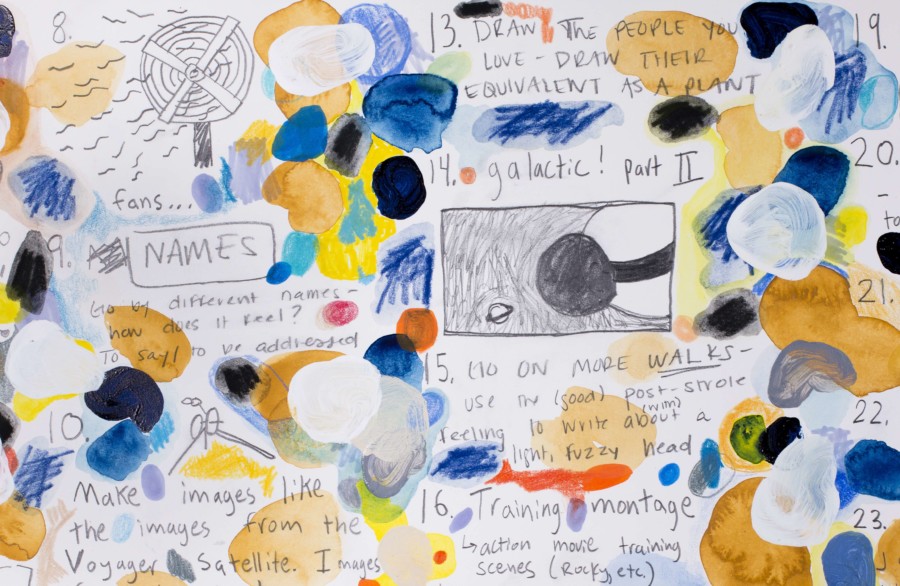 8.
fans...
9. NAMES
Go by different names-
how does it feel?
To say/ to be addressed
10.
Make images like
the images from the
Voyager Satellite. Images
13. DRAW THE PEOPLE YOU
LOVE - DRAW THEIR
EQUIVALENT AS A PLANT
14. galactic! part II
15. GO ON MORE WALKS-
use my (good) post-strole
feeling to write about a
light, fuzzy head
16. Training montage
↳action movie training
scenes (Rocky, etc.)
19.
20.
-
to
21.
22.
23.